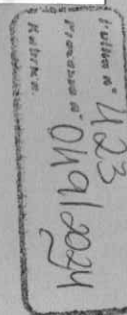 Folha nº 423
Processo nº 049/2024
Rubrica